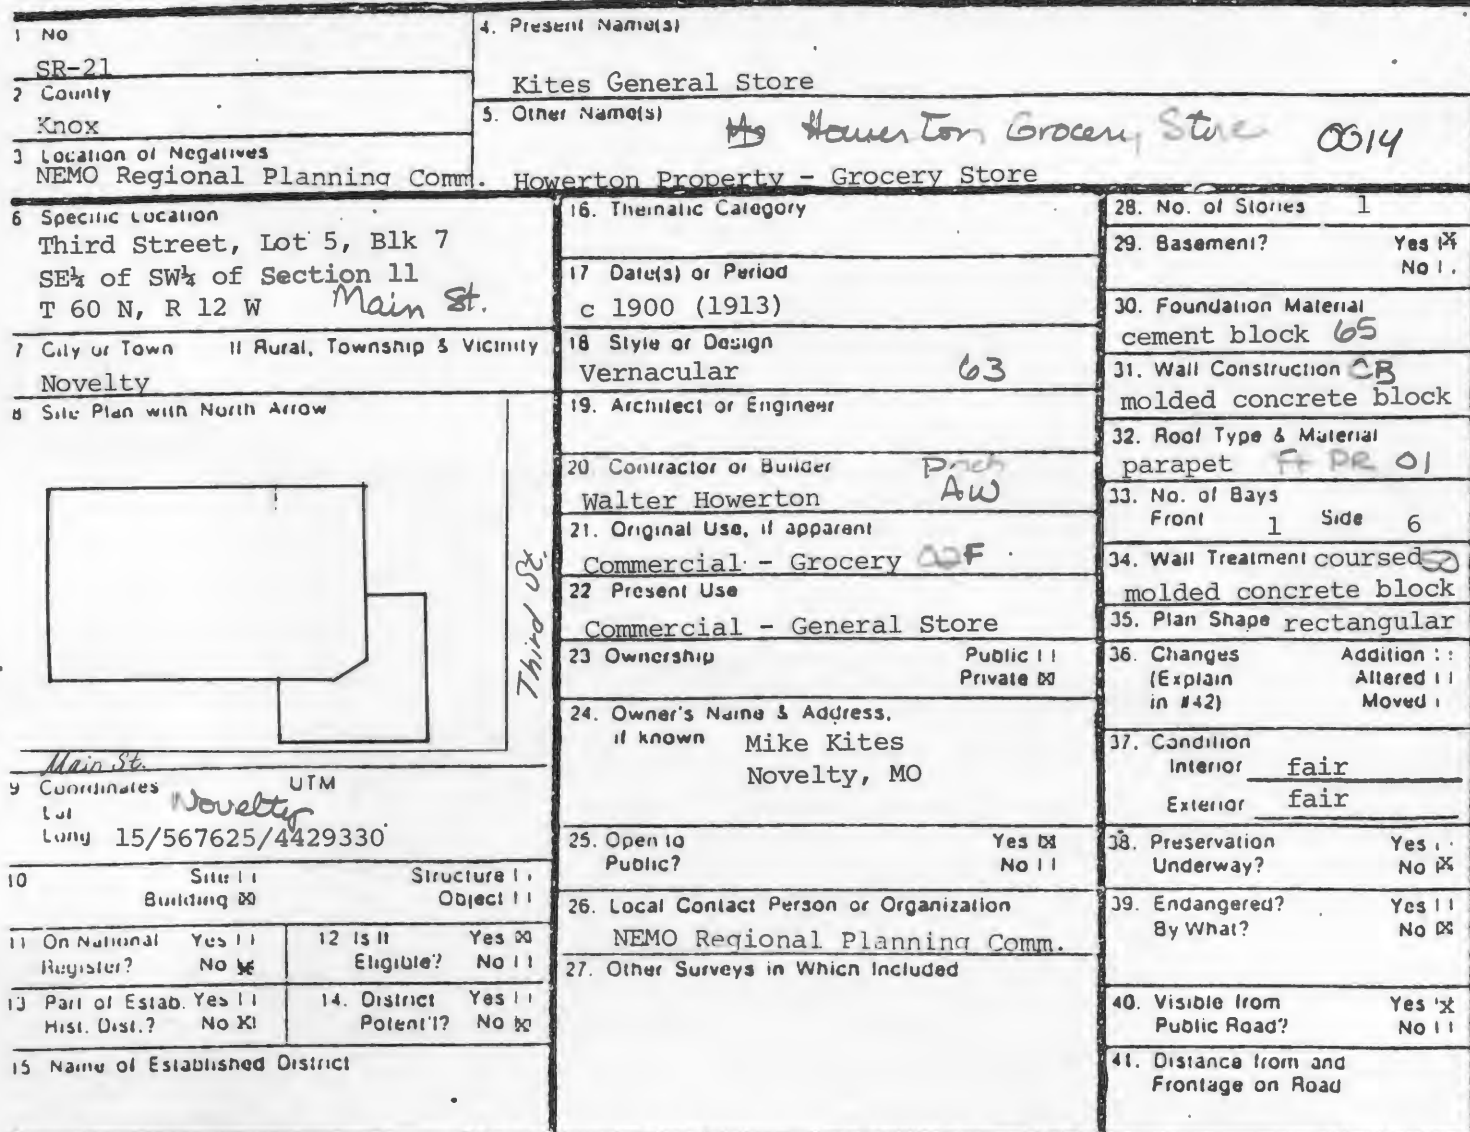 1 No
SR-21
2 County
Knox
3 Location of Negatives
NEMO Regional Planning Comm.
4. Present Name(s)
Kites General Store
5. Other Name(s)
Howerton Grocery Store 0014
Howerton Property - Grocery Store
6 Specific Location
Third Street, Lot 5, Blk 7
SE¼ of SW¼ of Section 11
T 60 N, R 12 W Main St.
7 City or Town If Rural, Township & Vicinity
Novelty
8 Site Plan with North Arrow
Third St.
Main St.
9 Coordinates UTM
Lat Novelty
Long 15/567625/4429330
10 Site Structure
Building ☒ Object
11 On National Yes
Register? No ☒
12 Is It Yes ☒
Eligible? No
13 Part of Estab. Yes
Hist. Dist.? No ☒
14. District Yes
Potent'l? No ☒
15 Name of Established District
16. Thematic Category
17 Date(s) or Period
c 1900 (1913)
18 Style or Design
Vernacular 63
19. Architect or Engineer
20 Contractor or Builder
Walter Howerton AW
21. Original Use, if apparent
Commercial - Grocery 02F
22 Present Use
Commercial - General Store
23 Ownership Public
Private ☒
24. Owner's Name & Address,
if known Mike Kites
Novelty, MO
25. Open to Yes ☒
Public? No
26. Local Contact Person or Organization
NEMO Regional Planning Comm.
27. Other Surveys in Which Included
28. No. of Stories 1
29. Basement? Yes ☒
No
30. Foundation Material
cement block 65
31. Wall Construction CB
molded concrete block
32. Roof Type & Material
parapet Ft PR 01
33. No. of Bays
Front 1 Side 6
34. Wall Treatment coursed 50
molded concrete block
35. Plan Shape rectangular
36. Changes Addition
(Explain Altered
in #42) Moved
37. Condition
Interior fair
Exterior fair
38. Preservation Yes
Underway? No ☒
39. Endangered? Yes
By What? No ☒
40. Visible from Yes ☒
Public Road? No
41. Distance from and
Frontage on Road